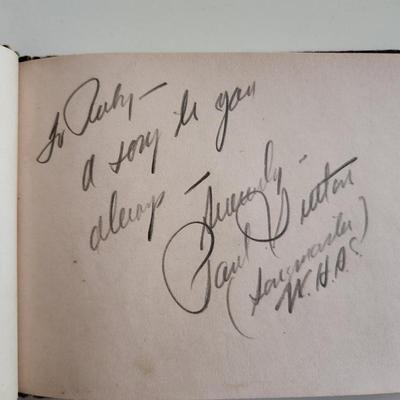 To Ruby —
A song to you
always —
Sincerely —
Paul Sutton
(Songmaster)
W.H.A.S.